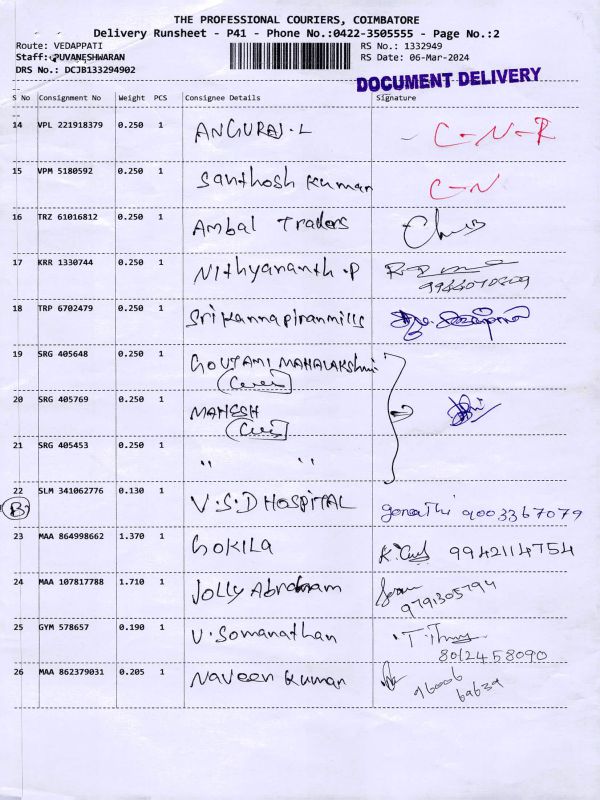 THE PROFESSIONAL COURIERS, COIMBATORE
Delivery Runsheet - P41 - Phone No.:0422-3505555 - Page No.:2
Route: VEDAPPATI RS No.: 1332949
Staff: PUVANESHWARAN RS Date: 06-Mar-2024
DRS No.: DCJB133294902
DOCUMENT DELIVERY
S No Consignment No Weight PCS Consignee Details Signature
14 VPL 221918379 0.250 1 ANGURAJ.L C-N-R
15 VPM 5180592 0.250 1 Santhosh Kumar C-N
16 TRZ 61016812 0.250 1 Ambal Traders
17 KRR 1330744 0.250 1 Nithyananth.P
18 TRP 6702479 0.250 1 Srikannapiranmills
19 SRG 405648 0.250 1 GOUTAMI MAHALAKShmi
20 SRG 405769 0.250 1 MAHESH
21 SRG 405453 0.250 1 " "
22 SLM 341062776 0.130 1 V.S.D HOSPITAL 9003367079
B
23 MAA 864998662 1.370 1 GOKILA 9942114754
24 MAA 107817788 1.710 1 Jolly Abraham
9791305794
25 GYM 578657 0.190 1 V.Somanathan
8012458090
26 MAA 862379031 0.205 1 Naveen Kumar
96006
69639